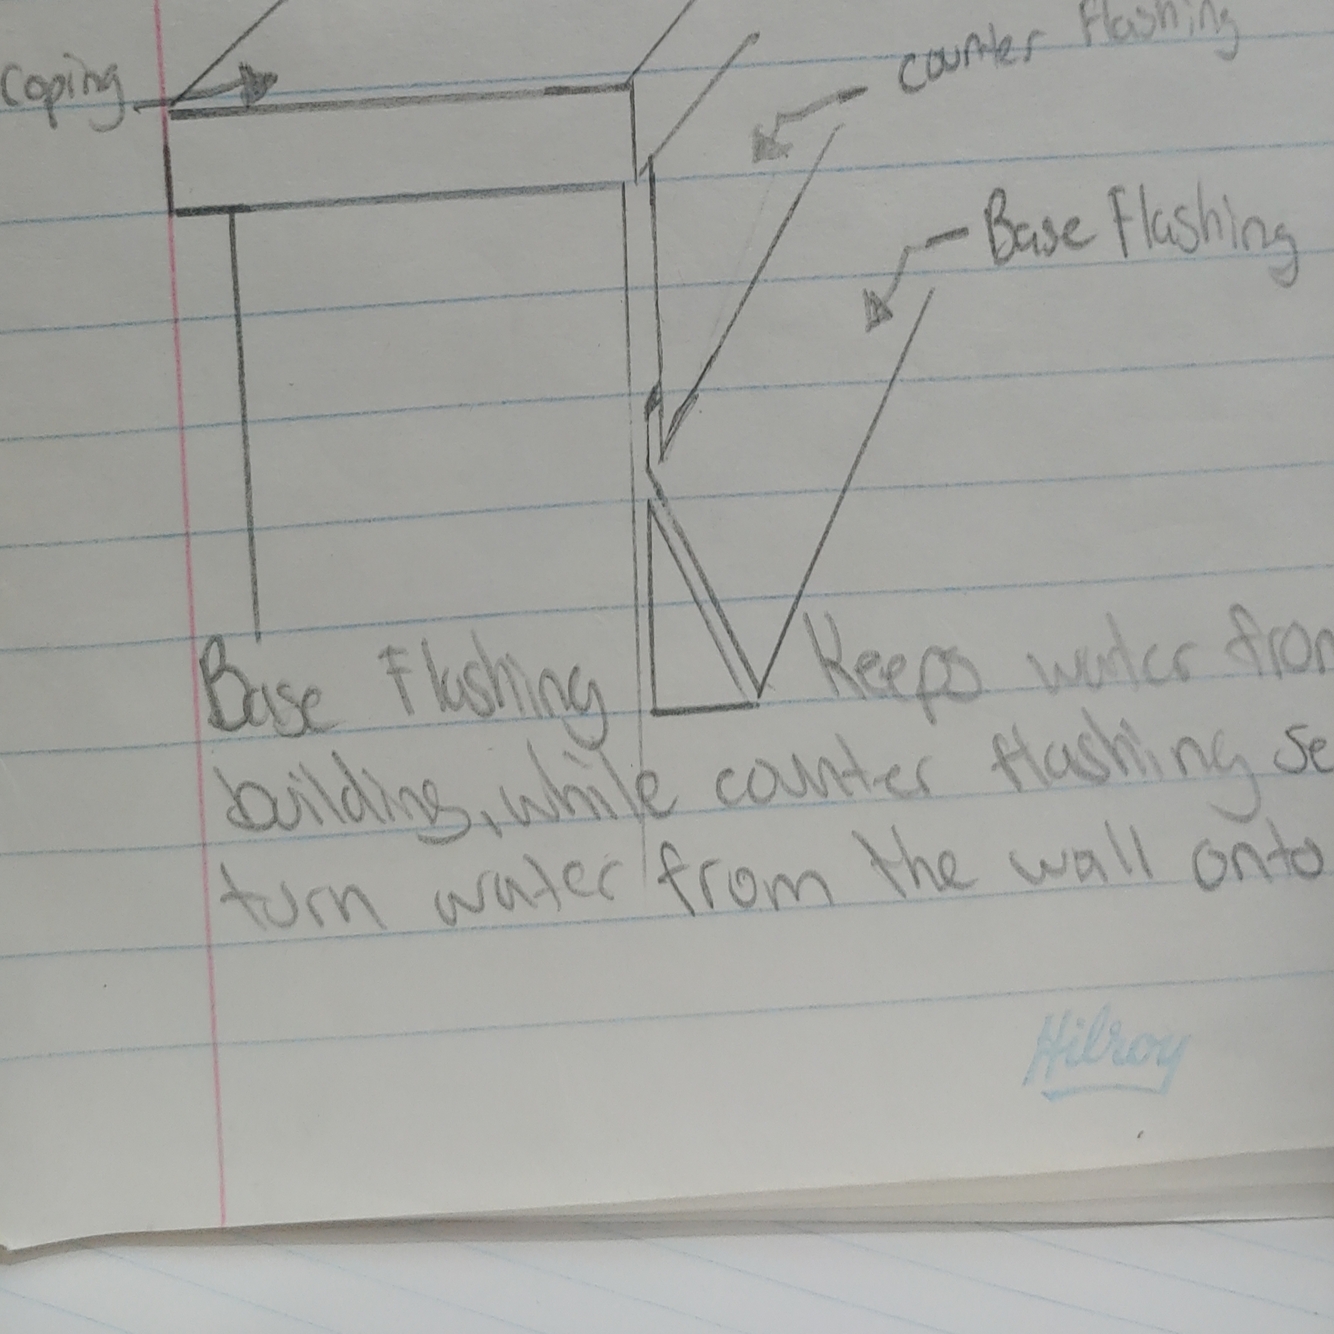 coping
counter Flashing
Base Flashing
Base Flashing Keeps water from
building, while counter flashing se
turn water from the wall onto
Hilroy